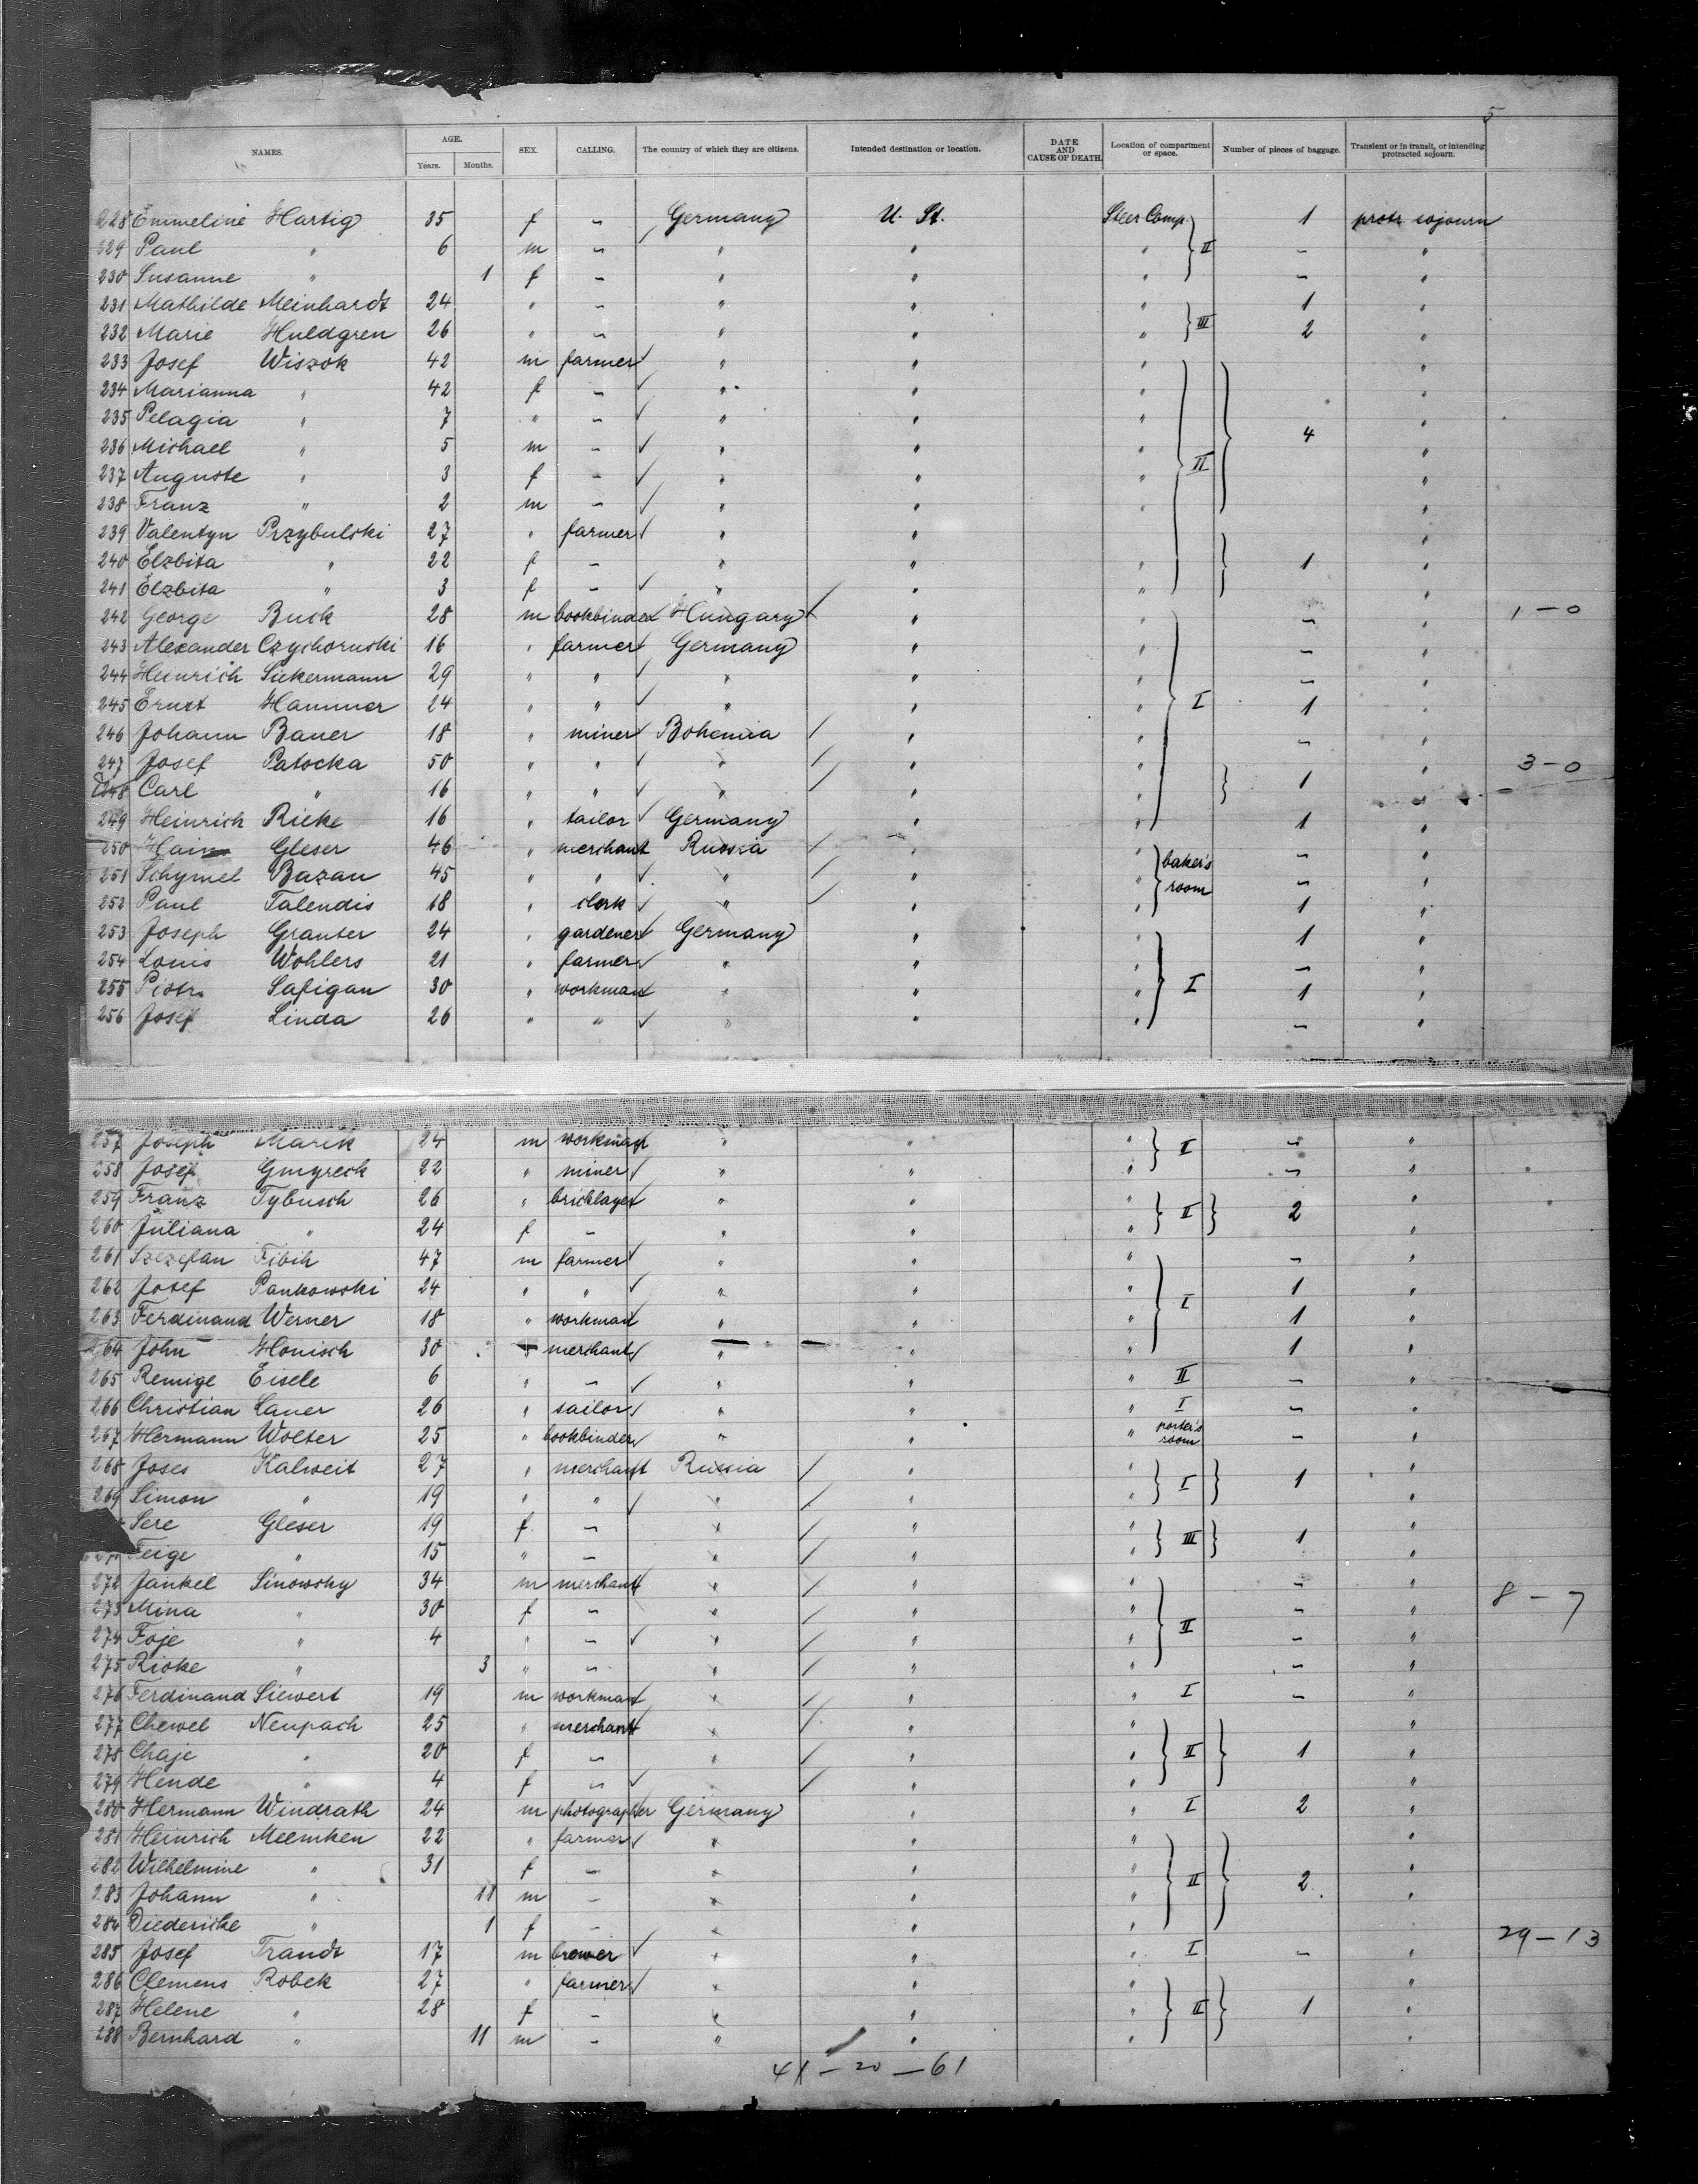 5
NAMES. AGE. Years. Months. SEX. CALLING. The country of which they are citizens. Intended destination or location. DATE AND CAUSE OF DEATH. Location of compartment or space. Number of pieces of baggage. Transient or in transit, or intending protracted sojourn.
228 Emmeline Hartig 35 f - Germany U. St. Steer Comp. 1 protr sojourn
229 Paul " 6 m - " " " II - "
230 Susanne " 1 f - " " " - "
231 Mathilde Meinhardt 24 " - " " " 1 "
232 Marie Huldgren 26 " - " " " III 2 "
233 Josef Wiszok 42 m farmer " " " "
234 Marianna " 42 f - " " " "
235 Pelagia " 7 " - " " " "
236 Michael " 5 m - " " " 4 "
237 Auguste " 3 f - " " " II "
238 Franz " 2 m - " " " "
239 Valentyn Przybulski 27 " farmer " " "
240 Elzbita " 22 f - " " " 1 "
241 Elzbita " 3 f - " " " "
242 George Buck 28 m bookbinder Hungary " " - " 1-0
243 Alexander Czychoruski 16 " farmer Germany " " - "
244 Heinrich Siekermann 29 " " " " " - "
245 Ernst Hammer 24 " " " " " I 1 "
246 Johann Bauer 18 " miner Bohemia " " - "
247 Josef Patocka 50 " " " " " " 3-0
248 Carl " 16 " " " " " 1 "
249 Heinrich Rieke 16 " tailor Germany " " 1 "
250 Gleser 46 " merchant Russia " " baker's - "
251 Schymel Bazan 45 " " " " " room - "
252 Paul Talendis 18 " clerk " " " 1 "
253 Joseph Grauter 24 " gardener Germany " " 1 "
254 Louis Wohlers 21 " farmer " " " - "
255 Piotr Safigan 30 " workman " " " I 1 "
256 Josef Linda 26 " " " " " - "
257 Joseph Marik 24 m workman " " " I - "
258 Josef Gmyreck 22 " miner " " " - "
259 Franz Tybusch 26 " bricklayer " " " II 2 "
260 Juliana " 24 f - " " " "
261 Szczefan Fibih 47 m farmer " " " - "
262 Josef Pankowski 24 " " " " " I 1 "
263 Ferdinand Werner 18 " workman " " " 1 "
264 John Honisch 30 " merchant " " " 1 "
265 Remige Eisele 6 " - " " " II - "
266 Christian Lauer 26 " tailor " " " I - "
267 Hermann Wolter 25 " bookbinder " " " porter's room - "
268 Joses Kalweit 27 " merchant Russia " " I 1 "
269 Simon " 19 " " " " " "
Sere Gleser 19 f - " " " III 1 "
Feige " 15 " - " " " "
272 Jankel Sinowsky 34 m merchant " " " - "
273 Mina " 30 f - " " " - " 8-7
274 Foje " 4 " - " " " II - "
275 Rioke " 3 " - " " " - "
276 Ferdinand Siewert 19 m workman " " " I - "
277 Chewel Neupach 25 " merchant " " " "
278 Chaje " 20 f - " " " II 1 "
279 Hende " 4 f - " " " "
280 Hermann Windrath 24 m photographer Germany " " I 2 "
281 Heinrich Meemken 22 " farmer " " " "
282 Wilhelmine " 31 f - " " " II 2 "
283 Johann " 11 m - " " " "
284 Diedericke " 1 f - " " "
285 Josef Trandt 17 m brewer " " " I - " 29-13
286 Clemens Robek 27 " farmer " " " "
287 Helene " 28 f - " " " II 1 "
288 Bernhard " 11 m - " " " "
41-20-61